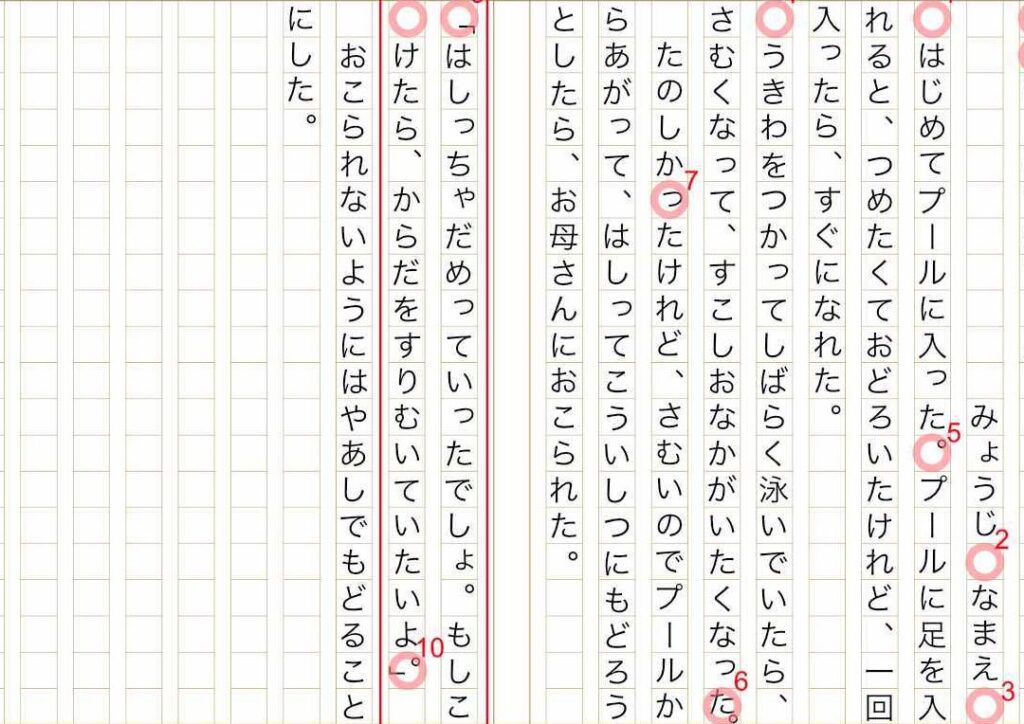 みょうじ　なまえ
はじめてプールに入った。プールに足を入
れると、つめたくておどろいたけれど、一回
入ったら、すぐになれた。
うきわをつかってしばらく泳いでいたら、
さむくなって、すこしおなかがいたくなった。
たのしかったけれど、さむいのでプールか
らあがって、はしってこういしつにもどろう
としたら、お母さんにおこられた。
「はしっちゃだめっていったでしょ。もしこ
けたら、からだをすりむいていたいよ。」
おこられないようにはやあしでもどること
にした。
2
3
5
6
7
10